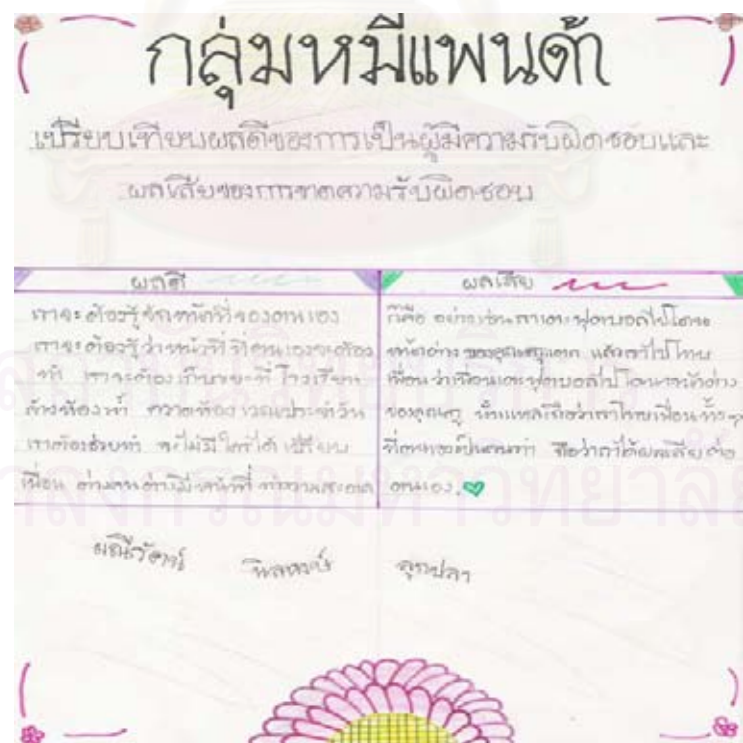 กลุ่มหมีแพนด้า
เปรียบเทียบผลดีของการเป็นผู้มีความรับผิดชอบและ
ผลเสียของการขาดความรับผิดชอบ
ผลดี
เราจะต้องรู้จักหน้าที่ของตนเอง
เราจะต้องรู้ว่าหน้าที่ที่ตนเองจะต้อง
ทำ เราจะต้องเก็บขยะที่โรงเรียน
ล้างห้องน้ำ กวาดห้อง เวรประจำวัน
เราต้องช่วยทำ จะไม่มีใครได้เปรียบ
เพื่อน ต่างคนต่างมีหน้าที่ ทำความสะอาด
ผลเสีย
ก็คือ อย่างเช่นเราเตะฟุตบอลไปโดน
หน้าต่าง ของคุณครูแตก แล้วเราไปโทษ
เพื่อนว่าเพื่อนเตะฟุตบอลไปโดนหน้าต่าง
ของคุณครู นั่นแหละถือว่าเราโทษเพื่อนทั้งๆ
ที่ตนเองเป็นคนทำ ถือว่าเราได้ผลเสียต่อ
ตนเอง.
มณีรัตน์ ลูกปลา